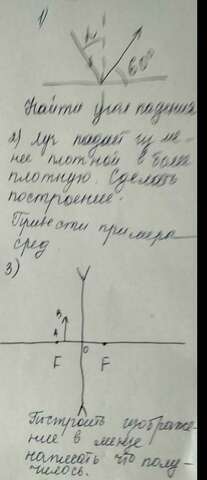 1)
60°
Найти угол падения
2) Луч падает из ме-
нее плотной в более
плотную. Сделать
построение.
Привести примеры
сред
3)
B
A
O
F F
Построить изображе-
ние в линзе
написать что полу-
чилось.